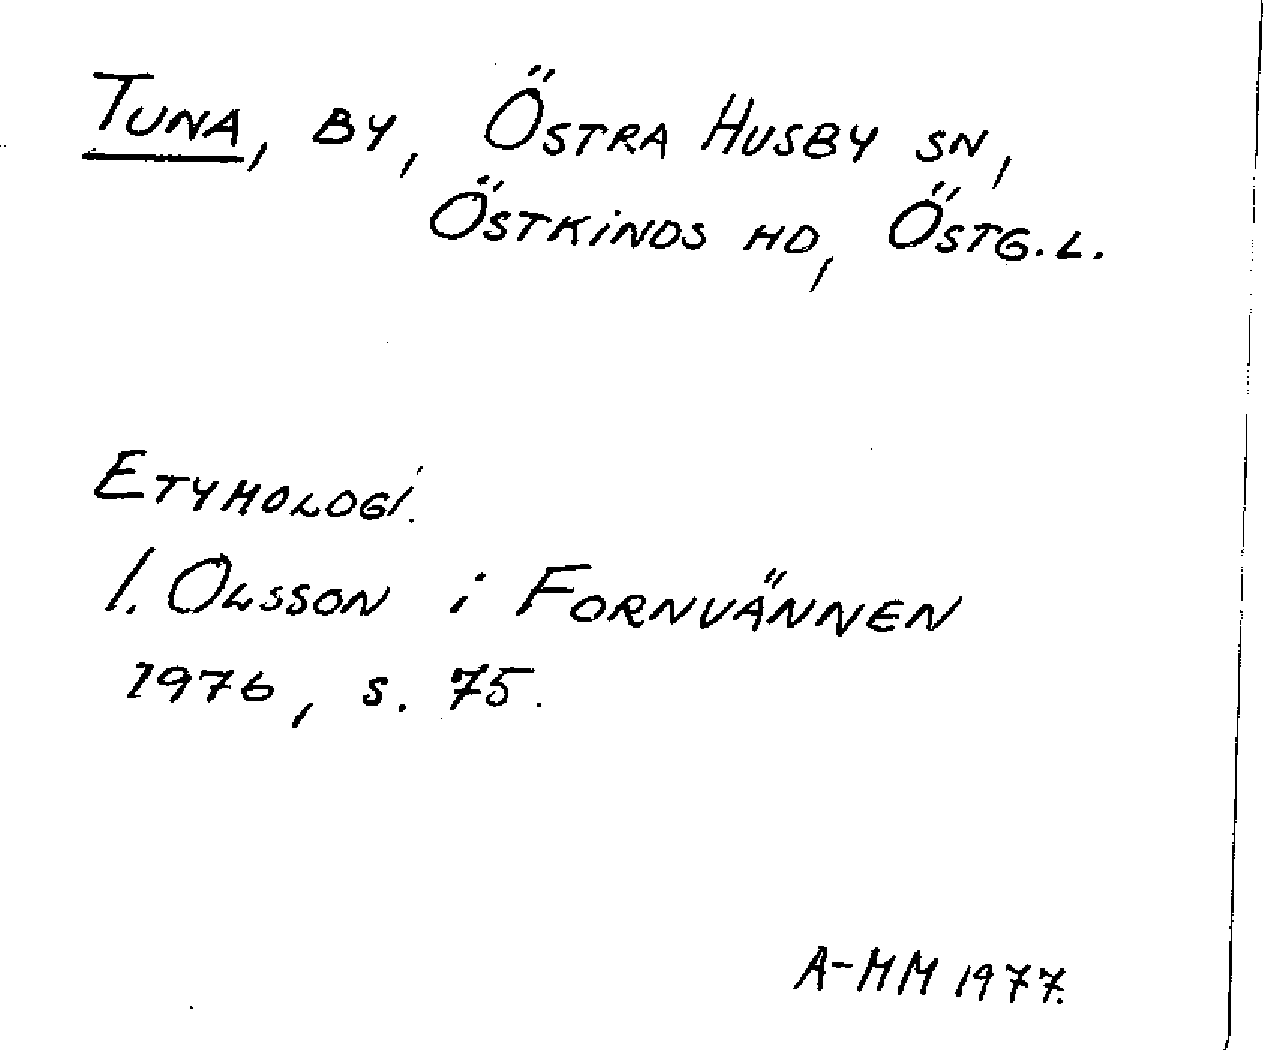 Tuna, by, Östra Husby sn,
Östkinds hd, Östg.l.
Etymologi.
I. Olsson i Fornvännen
1976, s. 75.
A-MM 1977.